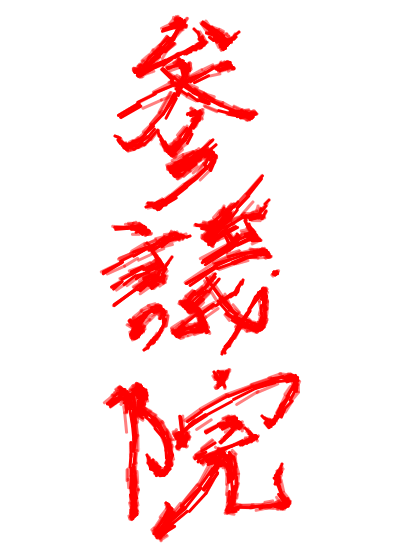 参議院